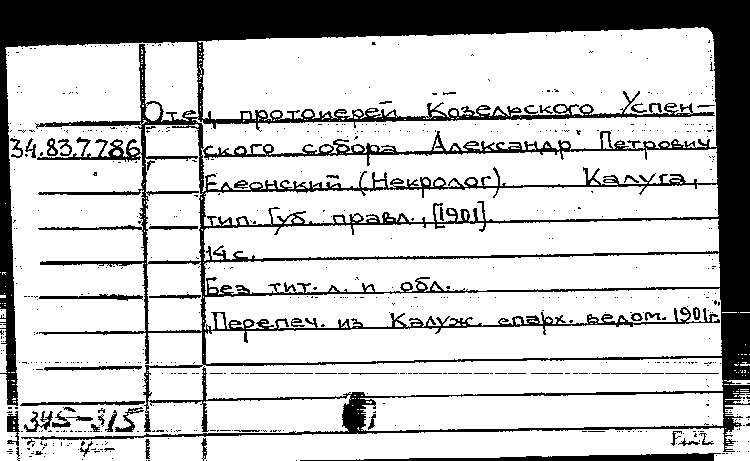 Отец протоиерей Козельского Успен-
34.83.7.786 ского собора Александр Петрович
Елеонский. (Некролог). Калуга,
тип. Губ. правл., [1901].
14 с.
Без тит. л. и обл.
Перепеч. из Калуж. епарх. ведом. 1901г.
345-315